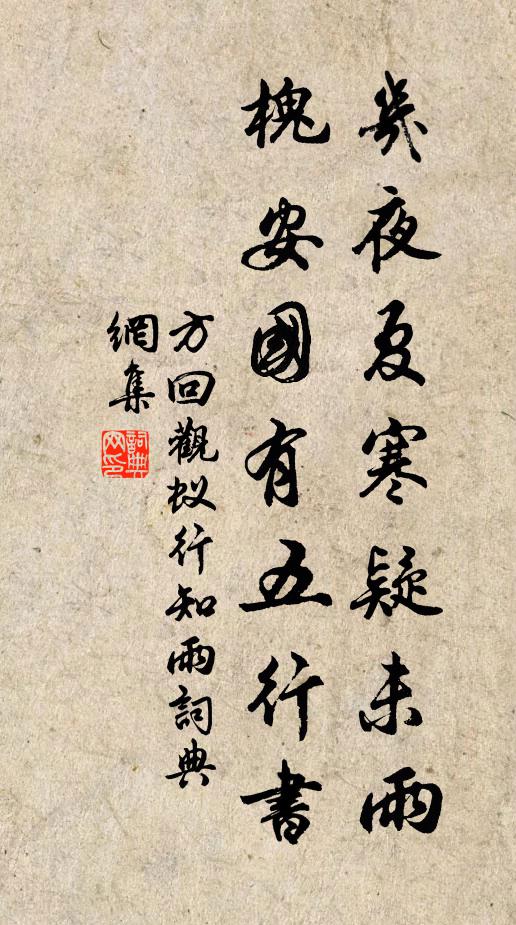 幾夜夏寒疑未雨
槐安國有五行書
方回觀蚁行知雨詞典
網集
詞典
网印